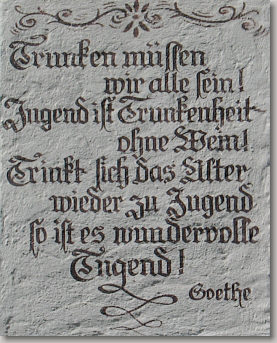 Trunken müssen
wir alle sein!
Jugend ist Trunkenheit
ohne Wein!
Trinkt sich das Alter
wieder zu Jugend
so ist es wundervolle
Tugend!
Goethe